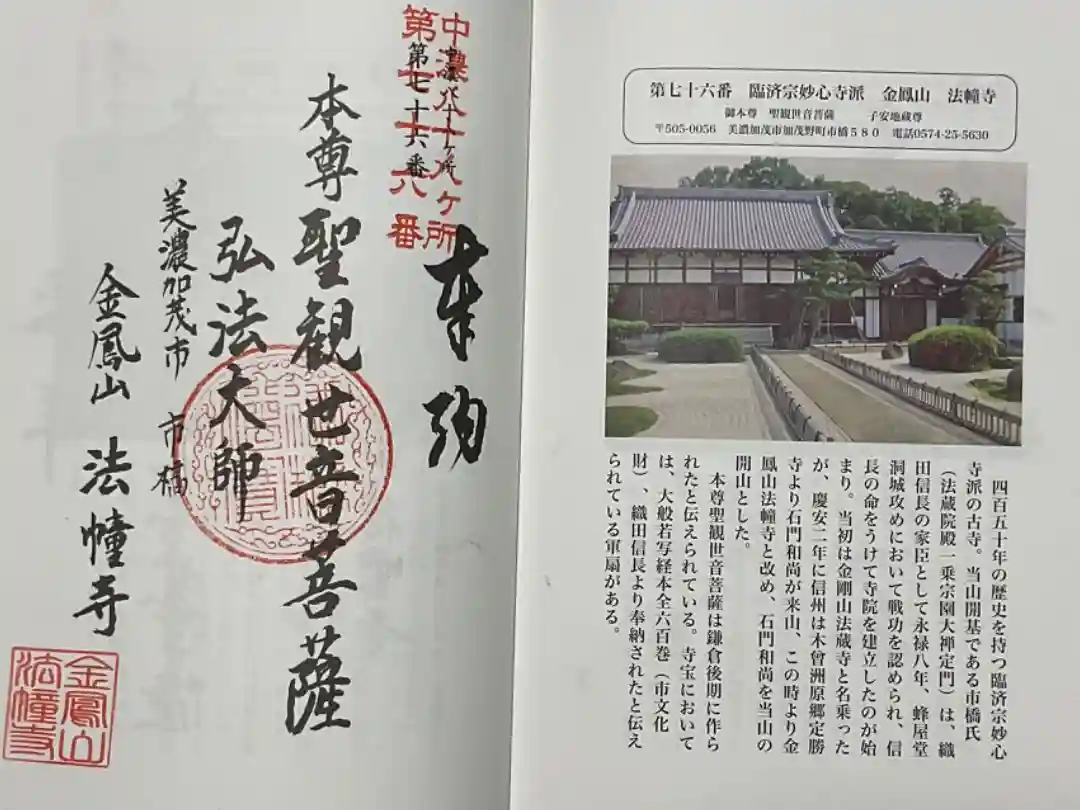 中濃八十八ヶ所
第七十六番
中濃八十八ヶ所
第七十六番
奉拘
本尊聖観世音菩薩
弘法大師
美濃加茂市市橋
金鳳山法幢寺
金鳳山
法幢寺
第七十六番 臨済宗妙心寺派 金鳳山 法幢寺
御本尊 聖観世音菩薩 子安地蔵尊
〒505-0056 美濃加茂市加茂野町市橋580 電話0574-25-5630
四百五十年の歴史を持つ臨済宗妙心
寺派の古寺。当山開基である市橋氏
（法蔵院殿一乗宗園大禅定門）は、織
田信長の家臣として永禄八年、蜂屋堂
洞城攻めにおいて戦功を認められ、信
長の命をうけて寺院を建立したのが始
まり。当初は金剛山法蔵寺と名乗った
が、慶安二年に信州は木曾洲原郷定勝
寺より石門和尚が来山、この時より金
鳳山法幢寺と改め、石門和尚を当山の
開山とした。
本尊聖観世音菩薩は鎌倉後期に作ら
れたと伝えられている。寺宝において
は、大般若写経本全六百巻（市文化
財）、織田信長より奉納されたと伝え
られている軍扇がある。